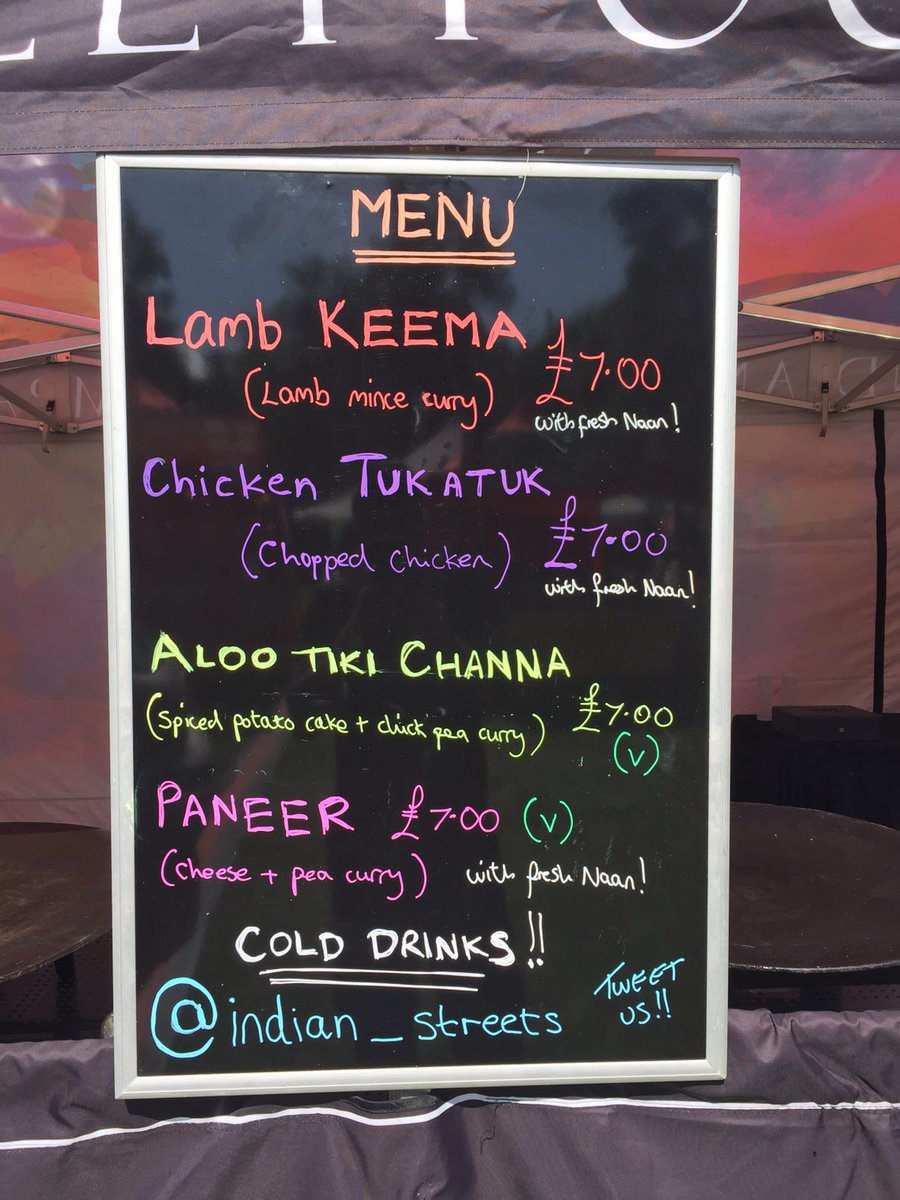 MENU
Lamb KEEMA
£7.00
(Lamb mince curry)
with fresh Naan!
Chicken TUKATUK
£7.00
(Chopped Chicken)
with fresh Naan!
ALOO TIKI CHANNA
(Spiced potato cake + chick pea curry)
£7.00
(V)
PANEER £7.00 (V)
(Cheese + pea curry) with fresh Naan!
COLD DRINKS!!
TWEET
US!!
@indian_streets